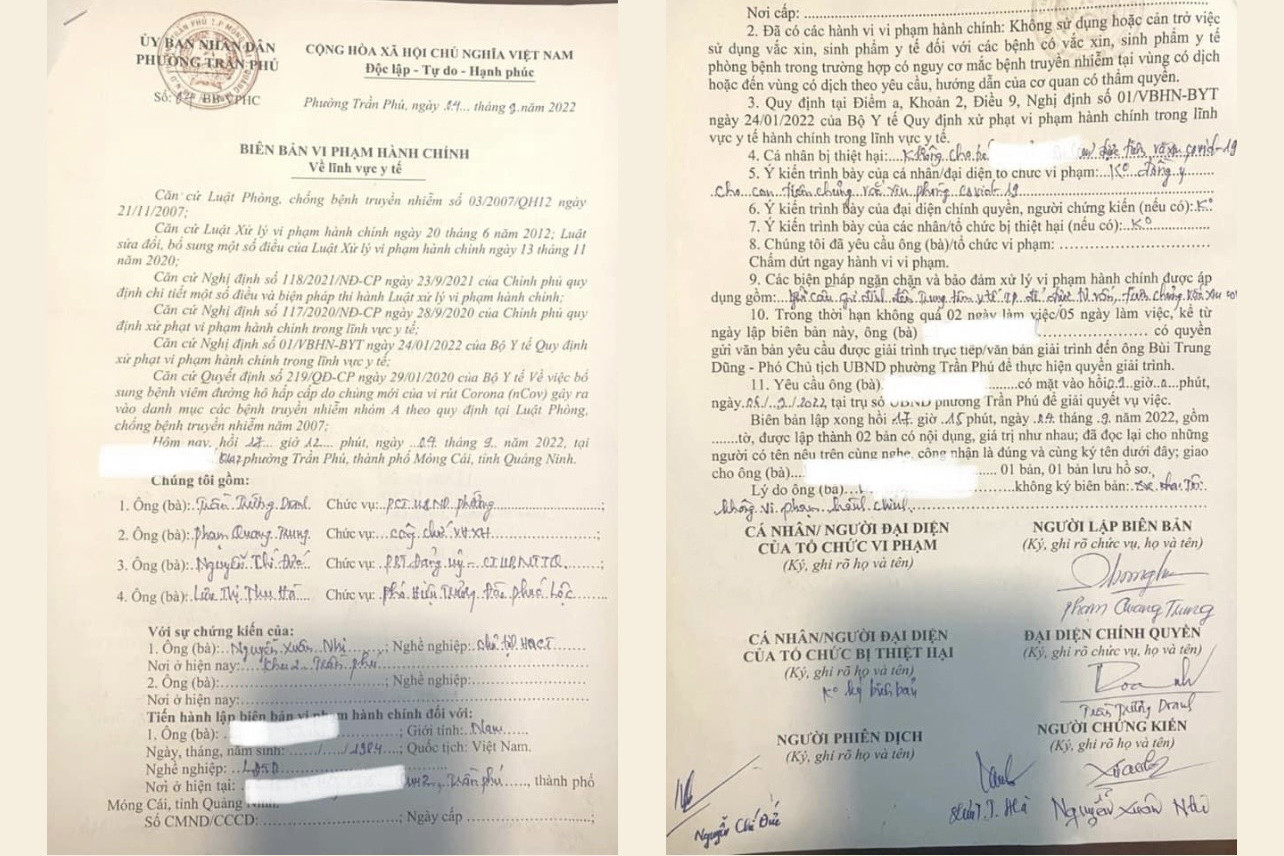 ỦY BAN NHÂN DÂN
PHƯỜNG TRẦN PHÚ
CỘNG HÒA XÃ HỘI CHỦ NGHĨA VIỆT NAM
Độc lập - Tự do - Hạnh phúc
Số: /BB-VPHC
Phường Trần Phú, ngày 04... tháng 9.năm 2022
BIÊN BẢN VI PHẠM HÀNH CHÍNH
Về lĩnh vực y tế
Căn cứ Luật Phòng, chống bệnh truyền nhiễm số 03/2007/QH12 ngày
21/11/2007;
Căn cứ Luật Xử lý vi phạm hành chính ngày 20 tháng 6 năm 2012; Luật
sửa đổi, bổ sung một số điều của Luật Xử lý vi phạm hành chính ngày 13 tháng 11
năm 2020;
Căn cứ Nghị định số 118/2021/NĐ-CP ngày 23/9/2021 của Chính phủ quy
định chi tiết một số điều và biện pháp thi hành Luật xử lý vi phạm hành chính;
Căn cứ Nghị định số 117/2020/NĐ-CP ngày 28/9/2020 của Chính phủ quy
định xử phạt vi phạm hành chính trong lĩnh vực y tế;
Căn cứ Nghị định số 01/VBHN-BYT ngày 24/01/2022 của Bộ Y tế Quy định
xử phạt vi phạm hành chính trong lĩnh vực y tế;
Căn cứ Quyết định số 219/QĐ-CP ngày 29/01/2020 của Bộ Y tế Về việc bổ
sung bệnh viêm đường hô hấp cấp do chủng mới của vi rút Corona (nCov) gây ra
vào danh mục các bệnh truyền nhiễm nhóm A theo quy định tại Luật Phòng,
chống bệnh truyền nhiễm năm 2007;
Hôm nay, hồi 17... giờ 12.... phút, ngày ..04. tháng .9.. năm 2022, tại
Khu 2 phường Trần Phú, thành phố Móng Cái, tỉnh Quảng Ninh.
Chúng tôi gồm:
1. Ông (bà): Trần Trường Doanh Chức vụ: PCT UBND phường
2. Ông (bà): Phạm Quang Trung Chức vụ: công chức VHXH
3. Ông (bà): Nguyễn Chí Đức Chức vụ: PBT Đảng ủy - CT UBMTTQ
4. Ông (bà): Liêu Thị Thu Hà Chức vụ: Phó Hiệu Trưởng
Với sự chứng kiến của:
1. Ông (bà): Nguyễn Xuân Nhị ; Nghề nghiệp:
Nơi ở hiện nay: Khu 2 - Trần Phú
2. Ông (bà): ; Nghề nghiệp:
Nơi ở hiện nay:
Tiến hành lập biên bản vi phạm hành chính đối với:
1. Ông (bà): ; Giới tính: Nam
Ngày, tháng, năm sinh: ....../...../.1984.; Quốc tịch: Việt Nam.
Nghề nghiệp: LĐTD
Nơi ở hiện tại: Trần Phú, thành phố
Móng Cái, tỉnh Quảng Ninh.
Số CMND/CCCD: ; Ngày cấp ;
Nơi cấp:
2. Đã có các hành vi vi phạm hành chính: Không sử dụng hoặc cản trở việc
sử dụng vắc xin, sinh phẩm y tế đối với các bệnh có vắc xin, sinh phẩm y tế
phòng bệnh trong trường hợp có nguy cơ mắc bệnh truyền nhiễm tại vùng có dịch
hoặc đến vùng có dịch theo yêu cầu, hướng dẫn của cơ quan có thẩm quyền.
3. Quy định tại Điểm a, Khoản 2, Điều 9, Nghị định số 01/VBHN-BYT
ngày 24/01/2022 của Bộ Y tế Quy định xử phạt vi phạm hành chính trong lĩnh
vực y tế hành chính trong lĩnh vực y tế.
4. Cá nhân bị thiệt hại: Không cho bé được tiêm vắc xin covid-19
5. Ý kiến trình bày của cá nhân/đại diện to chưc vi phạm: Ko đồng ý
cho con tiêm chủng vắc xin phòng covid 19
6. Ý kiến trình bày của đại diện chính quyền, người chứng kiến (nếu có): Ko
7. Ý kiến trình bày của các nhân/tổ chức bị thiệt hại (nếu có): Ko
8. Chúng tôi đã yêu cầu ông (bà)/tổ chức vi phạm:
Chấm dứt ngay hành vi vi phạm.
9. Các biện pháp ngăn chặn và bảo đảm xử lý vi phạm hành chính được áp
dụng gồm: yêu cầu gia đình đến Trung tâm y tế TP để được tư vấn, tiêm chủng vắc xin
10. Trong thời hạn không quá 02 ngày làm việc/05 ngày làm việc, kể từ
ngày lập biên bản này, ông (bà) có quyền
gửi văn bản yêu cầu được giải trình trực tiếp/văn bản giải trình đến ông Bùi Trung
Dũng - Phó Chủ tịch UBND phường Trần Phú để thực hiện quyền giải trình.
11. Yêu cầu ông (bà). có mặt vào hồi giờ phút,
ngày /.9./2022, tại trụ sở UBND phường Trần Phú để giải quyết vụ việc.
Biên bản lập xong hồi 17. giờ .15 phút, ngày .04. tháng .9. năm 2022, gồm
tờ, được lập thành 02 bản có nội dung, giá trị như nhau; đã đọc lại cho những
người có tên nêu trên cùng nghe, công nhận là đúng và cùng ký tên dưới đây; giao
cho ông (bà) 01 bản, 01 bản lưu hồ sơ.
Lý do ông (bà) không ký biên bản:
không vi phạm hành chính
CÁ NHÂN/ NGƯỜI ĐẠI DIỆN
CỦA TỔ CHỨC VI PHẠM
(Ký, ghi rõ họ và tên)
NGƯỜI LẬP BIÊN BẢN
(Ký, ghi rõ chức vụ, họ và tên)
Phạm Quang Trung
CÁ NHÂN/NGƯỜI ĐẠI DIỆN
CỦA TỔ CHỨC BỊ THIỆT HẠI
(Ký, ghi rõ họ và tên)
Ko ký biên bản
ĐẠI DIỆN CHÍNH QUYỀN
(Ký, ghi rõ chức vụ, họ và tên)
Trần Trường Doanh
NGƯỜI PHIÊN DỊCH
(Ký, ghi rõ họ và tên)
NGƯỜI CHỨNG KIẾN
(Ký, ghi rõ họ và tên)
Nguyễn Chí Đức
Liêu T. T. Hà
Nguyễn Xuân Nhị